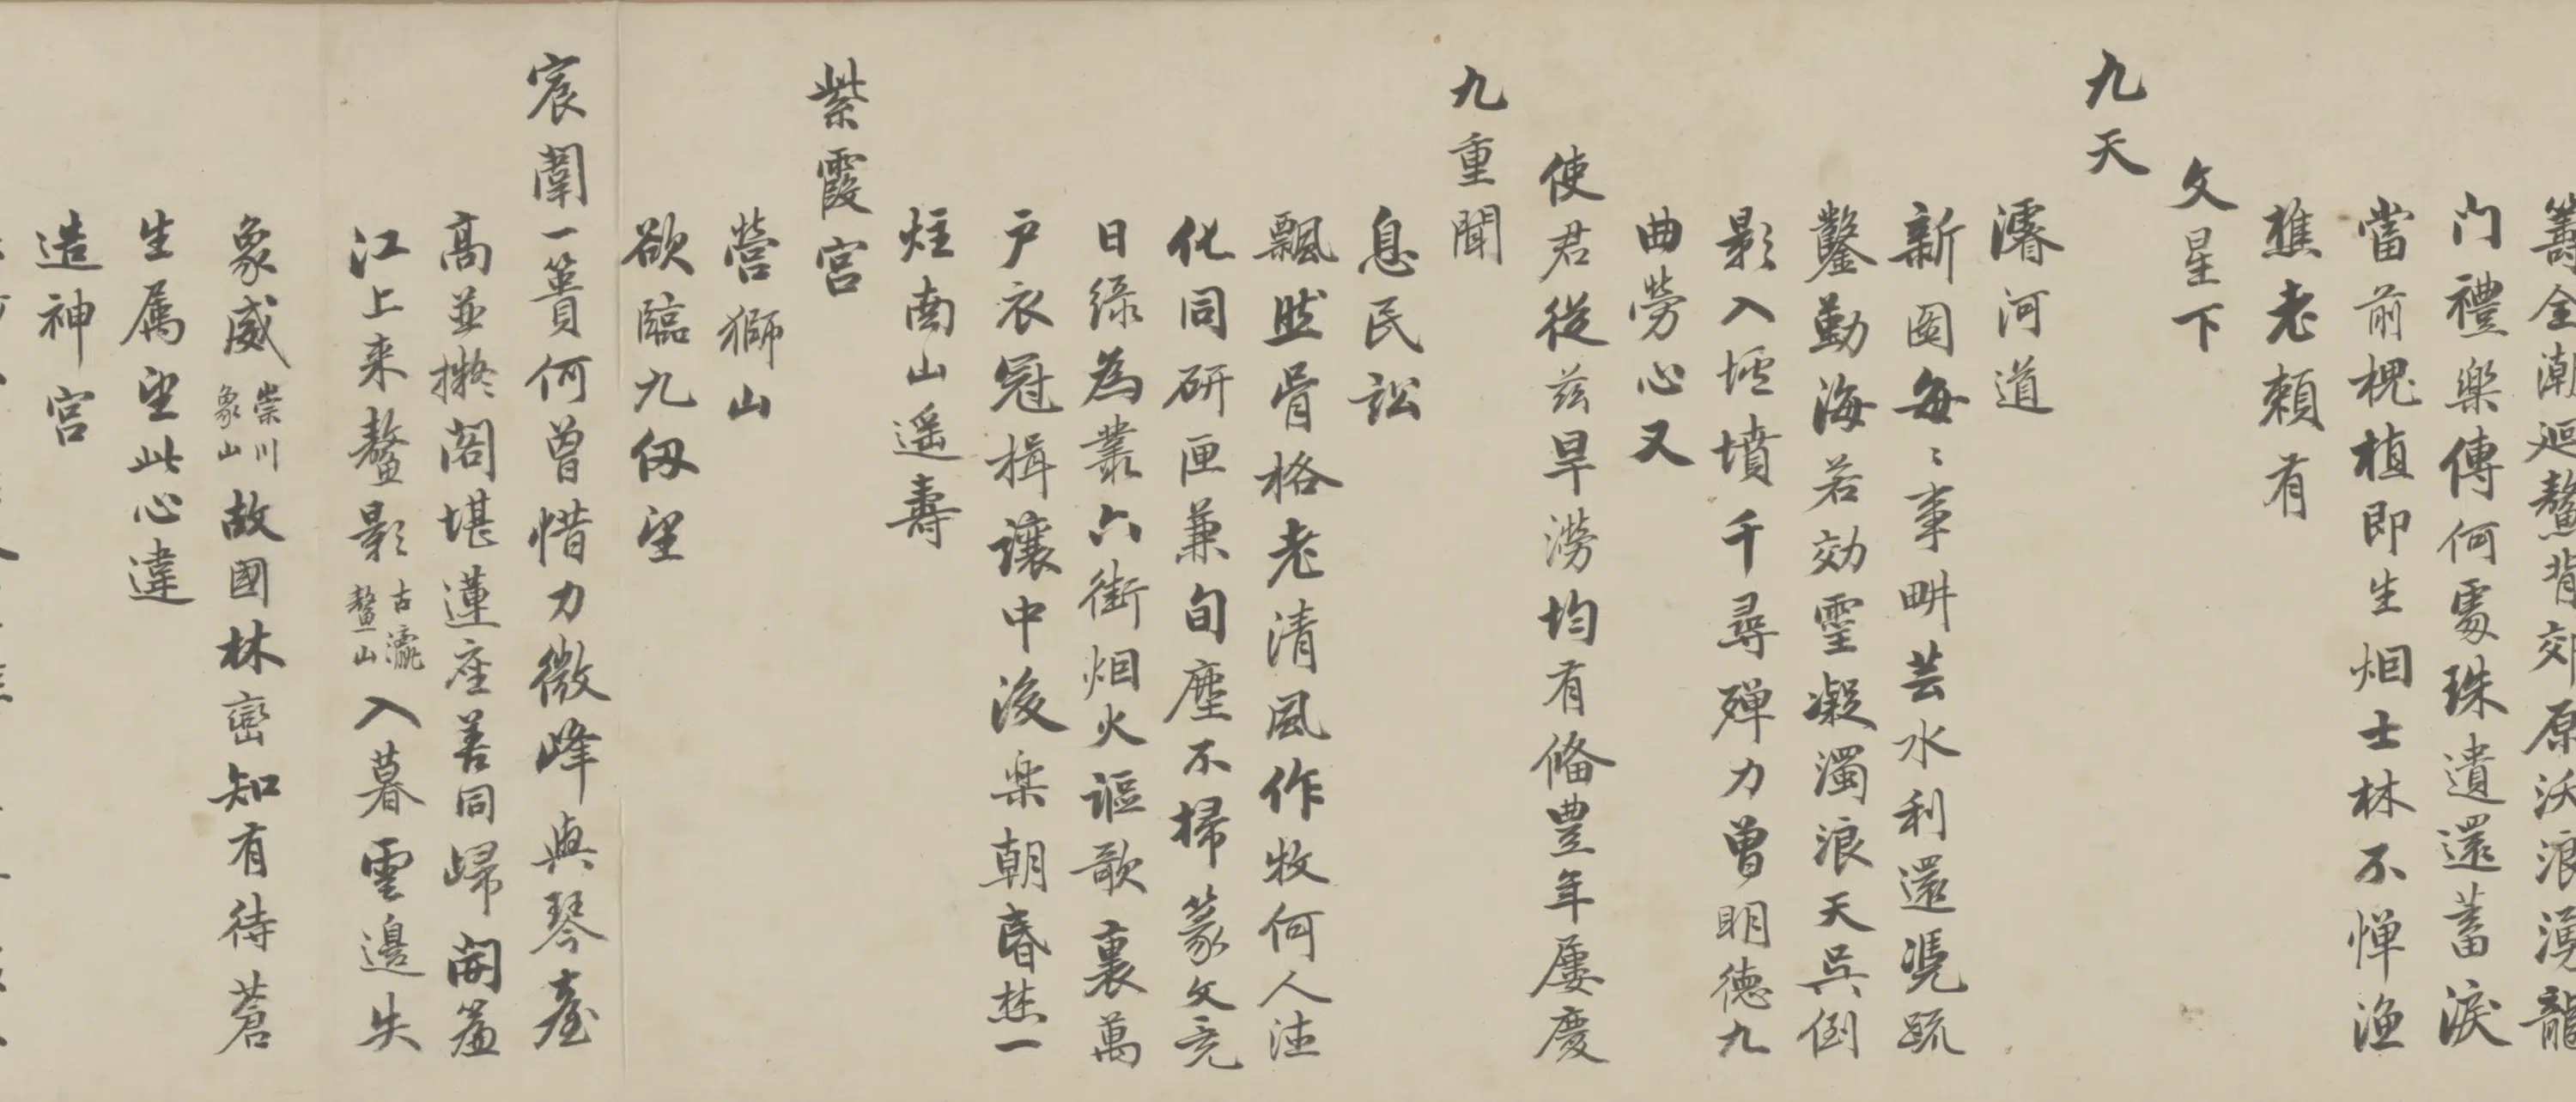 籌全潮迴鰲背郊原沃浪湧龍
门禮樂傳何處珠遺還蓄淚
當前槐植即生烟士林不憚漁
樵老頼有
文星下
九天
濬河道
新圖每〻事畊芸水利還凴疏
鑿勤海若効靈凝濁浪天吳倒
影入坵墳千尋殫力曾明德九
曲勞心又
使君從兹旱澇均有俻豊年屢慶
九重聞
息民訟
飄然骨格老清風作牧何人法
化同研匣兼旬塵不掃篆文竞
日緑為叢六街烟火謳歌裏萬
户衣冠揖讓中浚樂朝昏焚一
炷南山遥壽
紫霞宫
營獅山
欲臨九仭望
宸闈一蕢何曾惜力微峰與琴臺
髙並擬閣堪蓮座善同歸開葢
江上来鰲影古瀛鰲山入暮雲邊失
象威崇川象山故國林巒知有待蒼
生属望此心違
造神宫